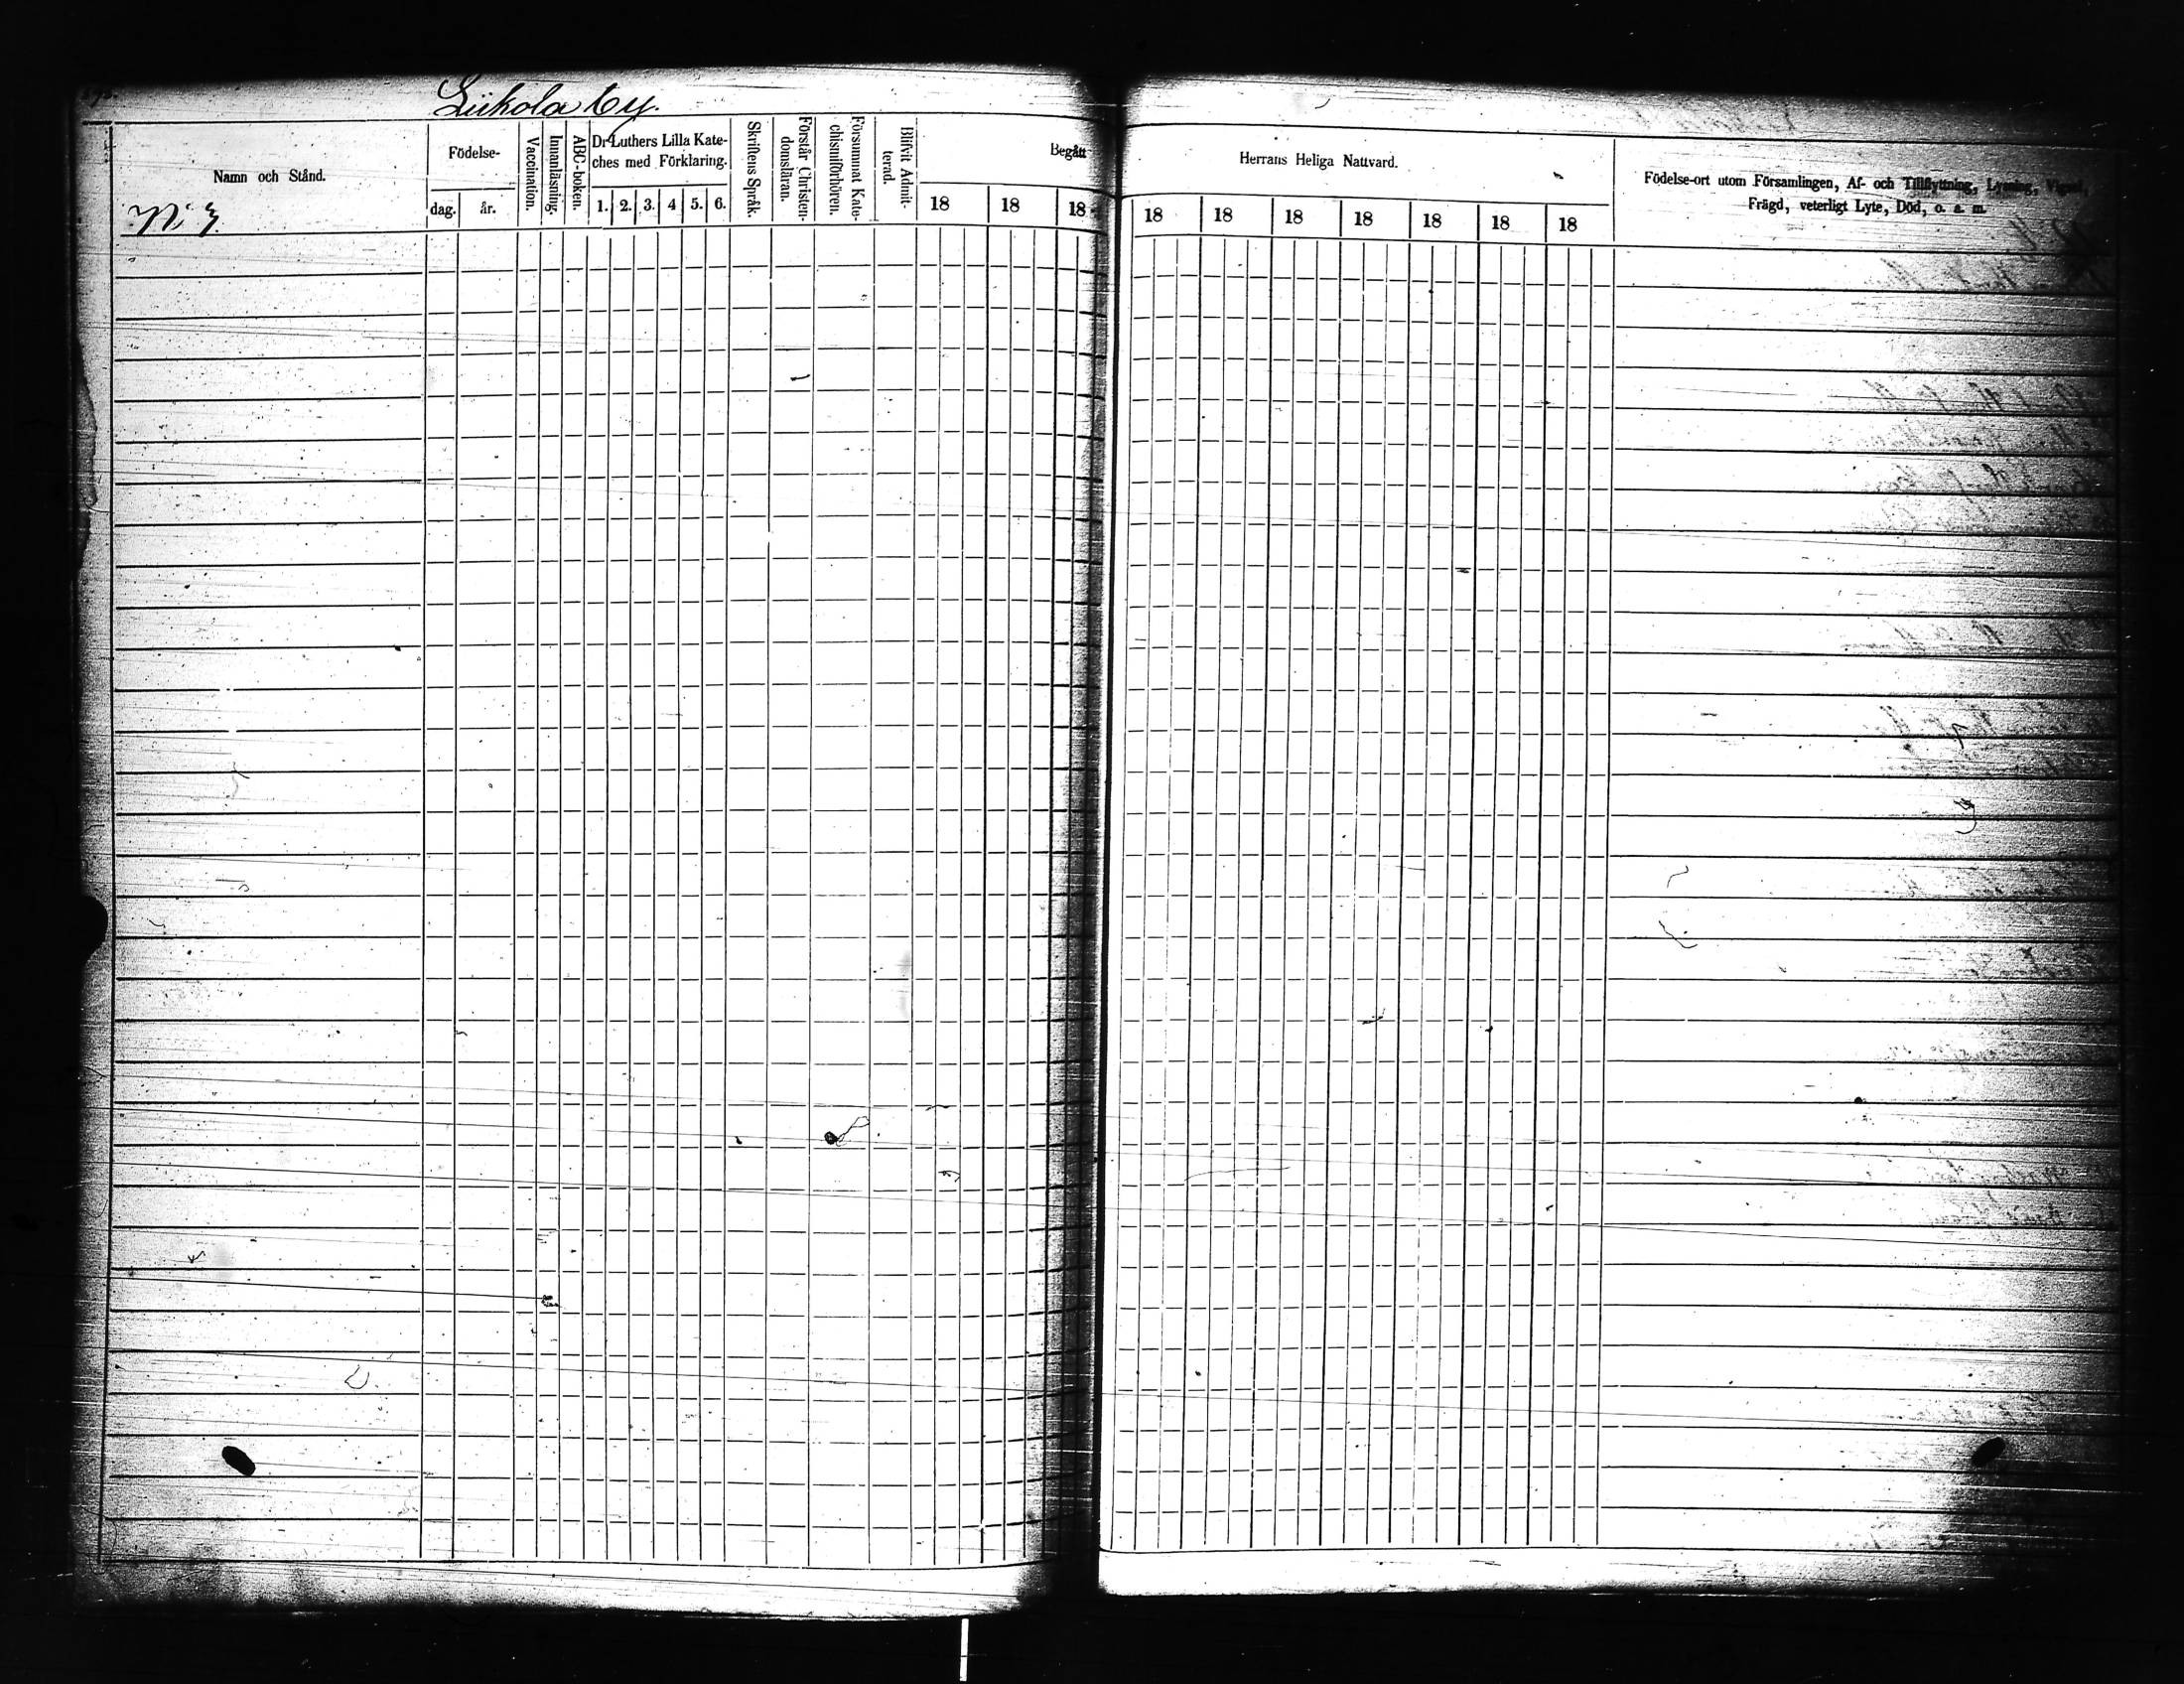 Liikola by.
Namn och Stånd.
Födelse-
dag. år.
Vaccination.
Innanläsning.
ABC-boken.
Dr Luthers Lilla Kate-
ches med Förklaring.
1. 2. 3. 4 5. 6.
Skriftens Språk.
Förstår Christen-
domsläran.
Försummat Kate-
chismiförhören.
Blifvit Admit-
terad.
Begått
18 18 18
Herrans Heliga Nattvard.
18 18 18 18 18 18 18
Födelse-ort utom Församlingen, Af- och Tillflyttning, Lysning, Vigsel,
Frägd, veterligt Lyte, Död, o. s. m.